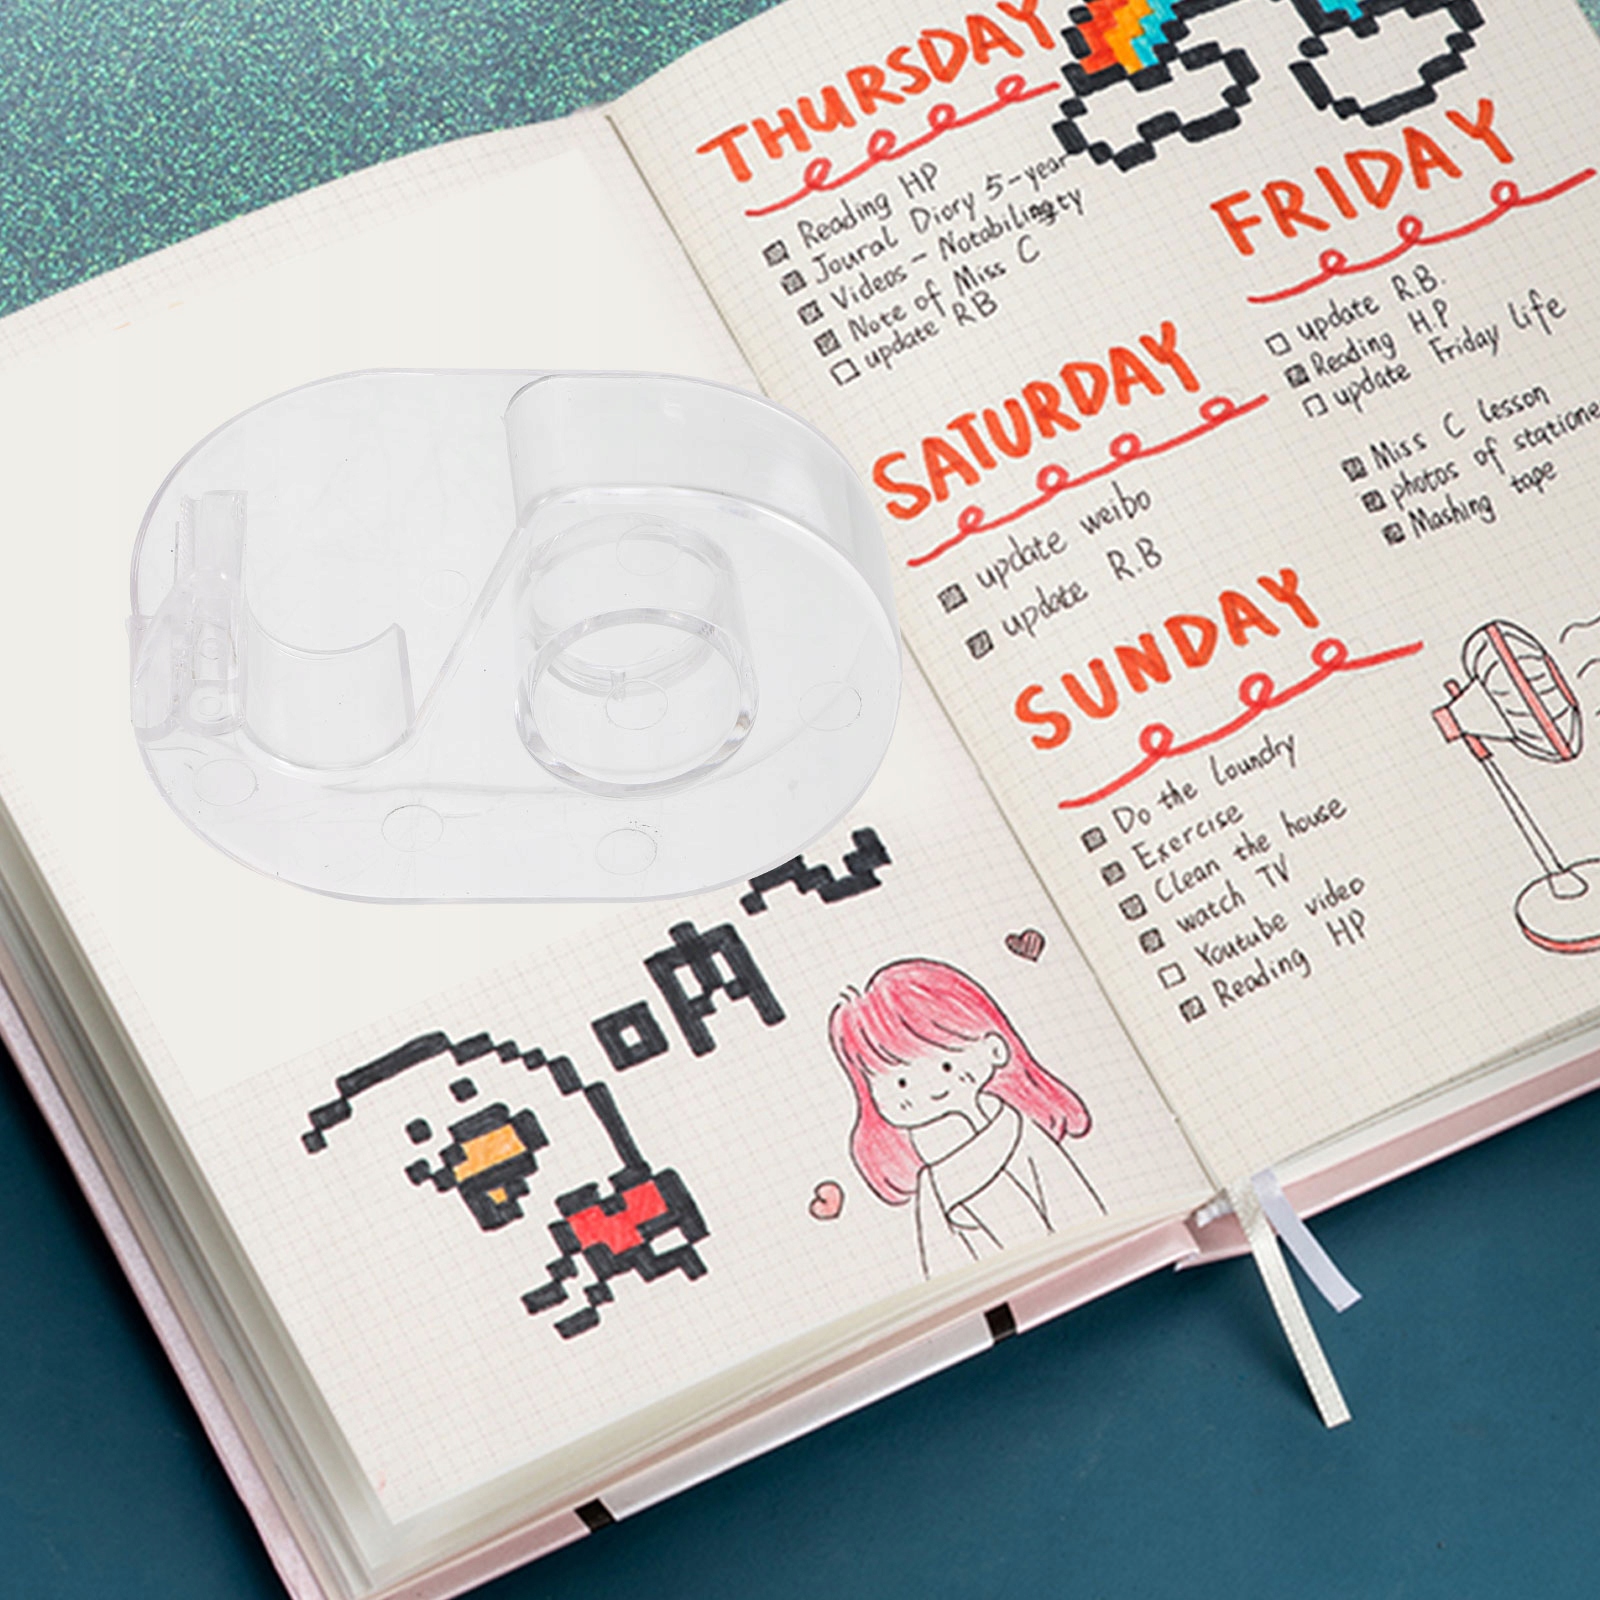 THURSDAY
Reading HP
Joural Diory 5-year
Videos - Notabilingty
Note of Miss C
update RB
FRIDAY
update R.B.
Reading H.P
update Friday Life
Miss C Lesson
photos of statione
Mashing tape
SATURDAY
update weibo
update R.B
SUNDAY
Do the Loundry
Exercise
Clean the house
watch TV
Youtube video
Reading HP
呐